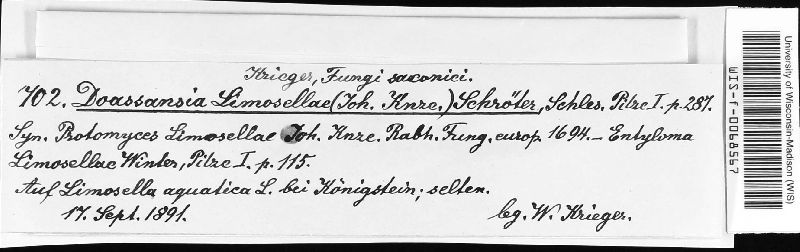 Krieger, Fungi saxonici.
702. Doassansia Limosellae (Joh. Knze.) Schröter, Schles. Pilze I. p. 287.
Syn. Protomyces Limosellae Joh. Knze. Rabh. Fung. europ. 1694. – Entyloma
Limosellae Winter, Pilze I. p. 115.
Auf Limosella aquatica L. bei Königstein; selten.
17. Sept. 1891. leg. W. Krieger.
University of Wisconsin-Madison (WIS)
WIS-f-0068567